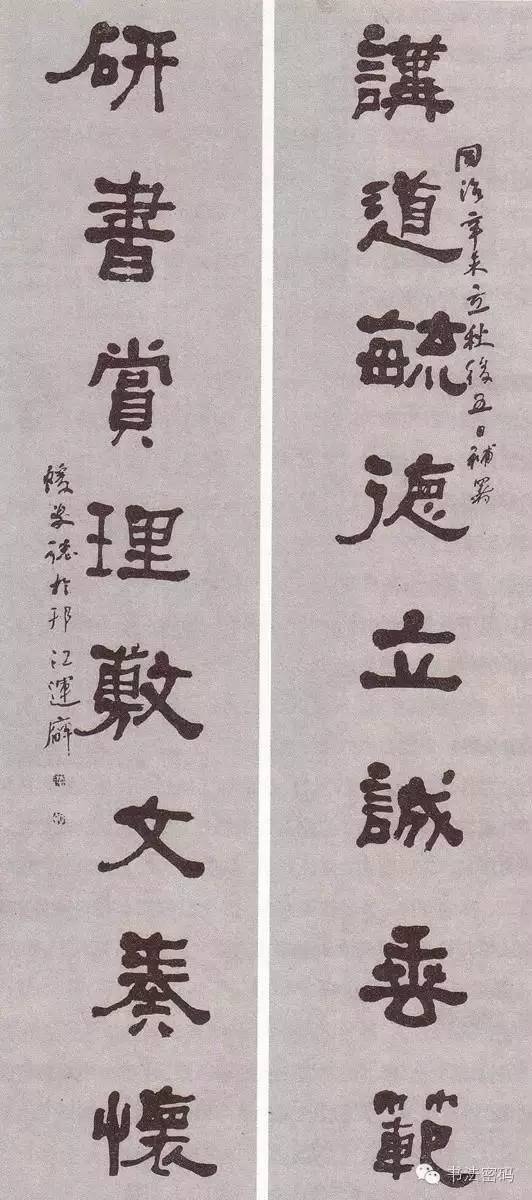 講道毓德立誠垂範
同治辛未立秋後五日補署
研書賞理敷文奏懷
蝯叟誌於邗江運廨
书法密码